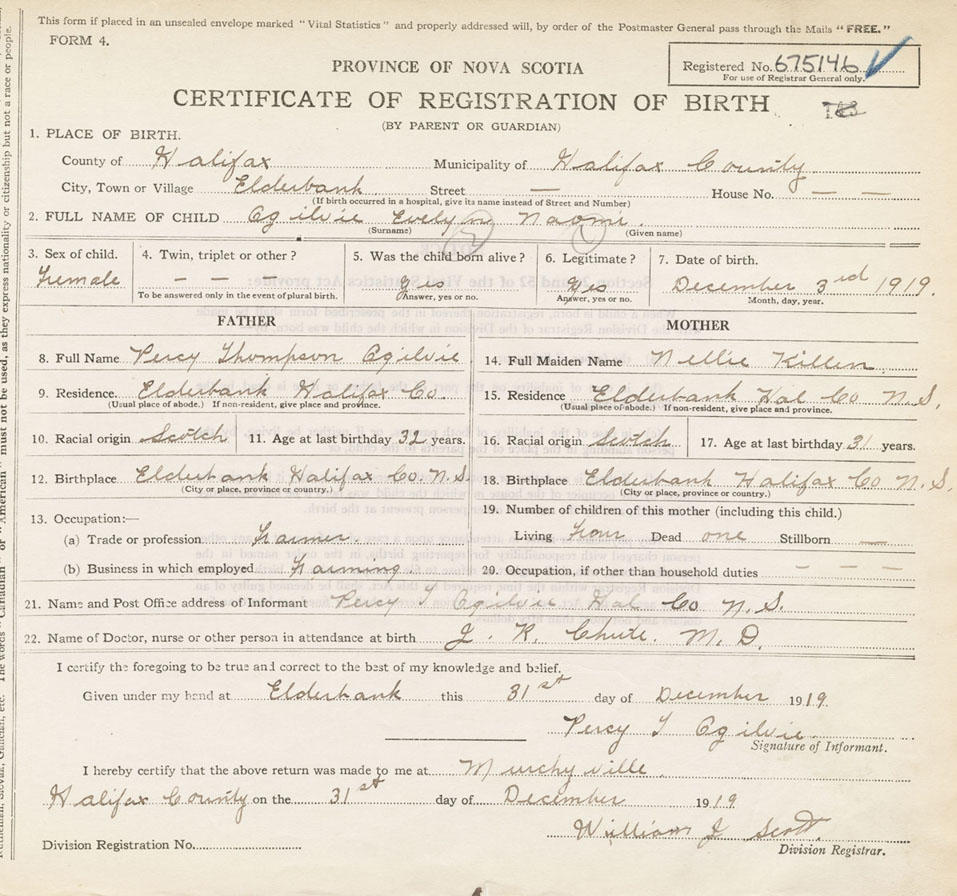 This form if placed in an unsealed envelope marked "Vital Statistics" and properly addressed will, by order of the Postmaster General pass through the Mails "FREE."
FORM 4.
Registered No. 675146
For use of Registrar General only.
PROVINCE OF NOVA SCOTIA
CERTIFICATE OF REGISTRATION OF BIRTH
(BY PARENT OR GUARDIAN)
1. PLACE OF BIRTH.
County of Halifax Municipality of Halifax County
City, Town or Village Elderbank Street — House No. — —
(If birth occurred in a hospital, give its name instead of Street and Number)
2. FULL NAME OF CHILD Ogilvie Evelyn Naomi
(Surname) (Given name)
3. Sex of child. 4. Twin, triplet or other? 5. Was the child born alive? 6. Legitimate? 7. Date of birth.
Female — — — Yes Yes December 3rd 1919.
To be answered only in the event of plural birth. Answer, yes or no. Answer, yes or no. Month, day, year.
FATHER MOTHER
8. Full Name Percy Thompson Ogilvie 14. Full Maiden Name Nellie Killen
9. Residence. Elderbank Halifax Co. 15. Residence Elderbank Hal Co N.S.
(Usual place of abode.) If non-resident, give place and province. (Usual place of abode.) If non-resident, give place and province.
10. Racial origin Scotch 11. Age at last birthday 32 years. 16. Racial origin Scotch 17. Age at last birthday 31 years.
12. Birthplace Elderbank Halifax Co. N.S. 18. Birthplace Elderbank Halifax Co N.S.
(City or place, province or country.) (City or place, province or country.)
13. Occupation:— 19. Number of children of this mother (including this child.)
(a) Trade or profession Farmer Living Four Dead one Stillborn —
(b) Business in which employed Farming 20. Occupation, if other than household duties — — —
21. Name and Post Office address of Informant Percy T Ogilvie Hal Co N.S.
22. Name of Doctor, nurse or other person in attendance at birth J. R. Chute. M.D.
I certify the foregoing to be true and correct to the best of my knowledge and belief.
Given under my hand at Elderbank this 31st day of December 1919.
Percy T Ogilvie
Signature of Informant.
I hereby certify that the above return was made to me at Murchyville
Halifax County on the 31st day of December 1919
William J Scott
Division Registrar.
Division Registration No.